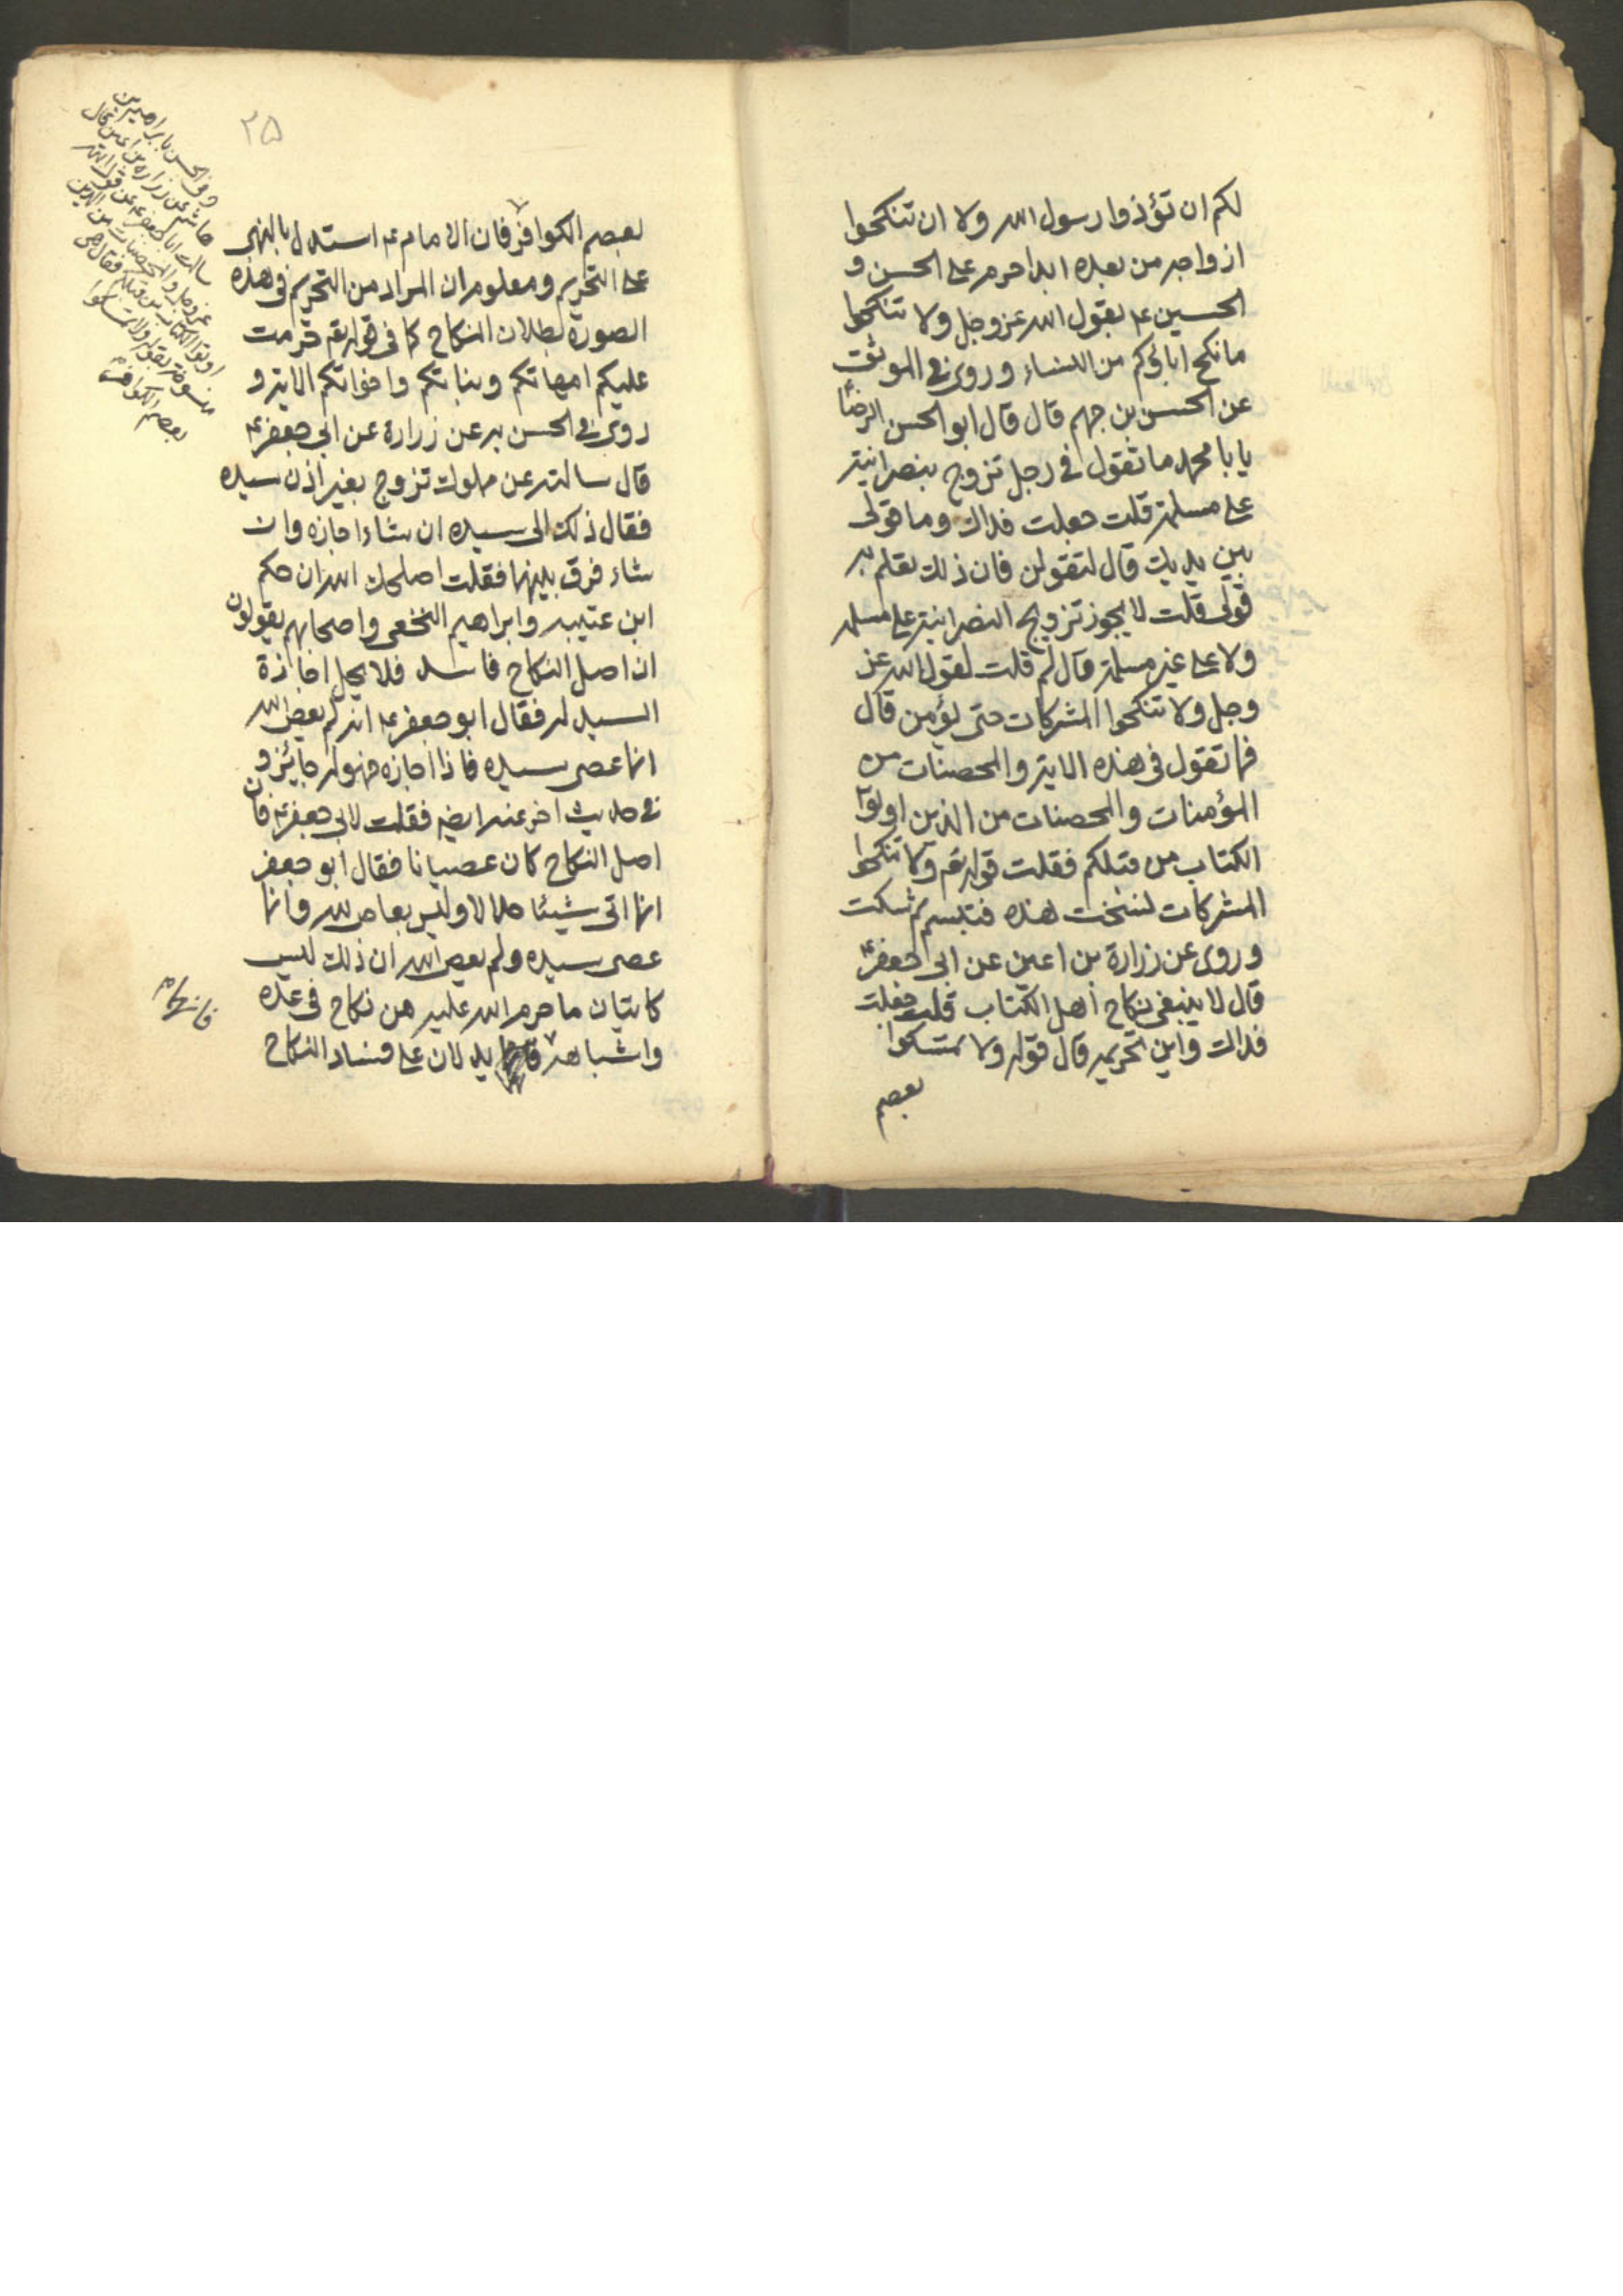 لكم ان تؤذوا رسول الله ولا ان تنكحوا
ازواجه من بعده ابدا حرم على الحسن و
الحسين ع بقول الله عز وجل ولا تنكحوا
ما نكح اباؤكم من النساء وروى في الموثق
عن الحسن بن جهم قال قال ابو الحسن الرضا
يا با محمد ما تقول في رجل تزوج بنصرانية
على مسلمة قلت جعلت فداك وما قولى
بين يديك قال لتقولن فان ذلك تعلم به
قولى قلت لا يجوز تزويج النصرانية على مسلمة
ولا على غير مسلمة قال لم قلت لقول الله عز
وجل ولا تنكحوا المشركات حتى يؤمن قال
فما تقول في هذه الاية والمحصنات من
المؤمنات والمحصنات من الذين اوتوا
الكتاب من قبلكم فقلت قوله تع ولا تنكحوا
المشركات نسخت هذه فتبسم ثم سكت
وروى عن زرارة بن اعين عن ابى جعفر ع
قال لا ينبغى نكاح اهل الكتاب قلت جعلت
فداك واين تحريمه قال قوله ولا تمسكوا
بعصم
٢٥
بعصم الكوافر فان الامام ع استدل بالنهى
على التحريم ومعلوم ان المراد من التحريم في هذه
الصورة بطلان النكاح كما في قوله تع حرمت
عليكم امهاتكم وبناتكم واخواتكم الاية و
روى في الحسن به عن زرارة عن ابى جعفر ع
قال سالته عن مملوك تزوج بغير اذن سيده
فقال ذلك الى سيده ان شاء اجازه وان
شاء فرق بينهما فقلت اصلحك الله ان حكم
ابن عتيبه وابراهيم النخعى واصحابهم يقولون
ان اصل النكاح فاسد فلا يحل اجازة
السيد له فقال ابو جعفر ع انه لم يعص الله
انما عصى سيده فاذا اجازه فهو له جايز و
في حديث اخر عنه ايضم فقلت لابى جعفر ع فان
اصل النكاح كان عصيانا فقال ابو جعفر
انما اتى شيئا حلالا وليس بعاص لله وانما
عصى سيده ولم يعص الله ان ذلك ليس
كاتيان ما حرم الله عليه من نكاح في عدة
واشباهه يدلان على فساد النكاح
فانهما م
وفي الحسن بابراهيم بن
هاشم عن زرارة بن اعين قال
سالت ابا جعفر ع عن قول الله
عز وجل والمحصنات من الذين
اوتوا الكتاب من قبلكم فقال هى
منسوخة بقوله ولا تمسكوا
بعصم الكوافر م